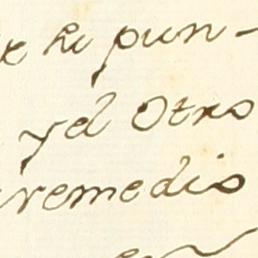 pun-
yel Otro
remedio